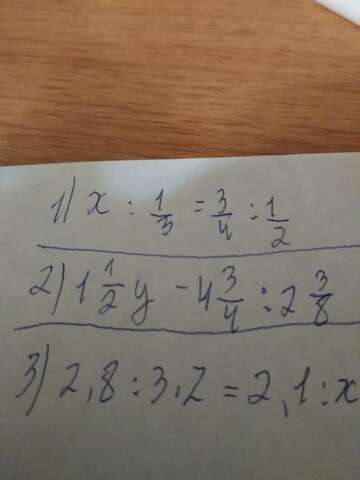 1) x : 1/3 = 3/4 : 1/2
2) 1 1/2 y - 4 3/4 : 2 3/8
3) 2,8 : 3,2 = 2,1 : x